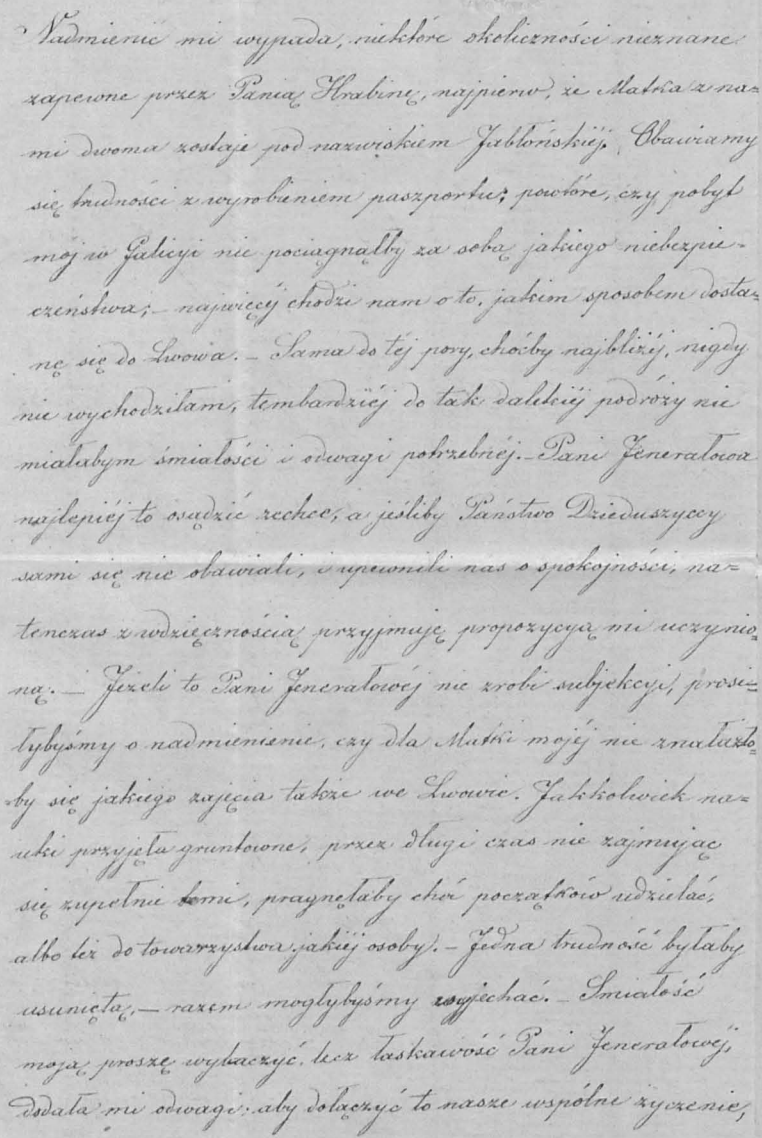 Nadmienić mi wypada, niektóre okoliczności nieznane
zapewne przez Panią Hrabinę, najpierw, że Matka z na=
mi dwoma zostaje pod nazwiskiem Jabłońskiéj. Obawiamy
się trudności z wyrobieniem paszportu; powtóre, czy pobyt
mój w Galicyi nie pociągnąłby za sobą jakiego niebezpie=
czeństwa; – najwięcéj chodzi nam o to, jakim sposobem dosta=
nę się do Lwowa. – Sama do téj pory, choćby najbliżéj, nigdy
nie wychodziłam, tembardziéj do tak dalekiéj podróży nie
miałabym śmiałości i odwagi potrzebnéj. – Pani Jenerałowa
najlepiéj to osądzić zechce, a jeśliby Państwo Dzieduszyccy
sami się nie obawiali, i upewnili nas o spokojności, na=
tenczas z wdzięcznością przyjmuję propozycyą mi uczynio=
ną. – Jeżeli to Pani Jenerałowéj nie zrobi subjekcyi, prosi=
łybyśmy o nadmienienie, czy dla Matki mojéj nie znalazło=
=by się jakiego zajęcia także we Lwowie. Jakkolwiek na=
uki przyjęła gruntowne, przez długi czas nie zajmując
się zupełnie temi, pragnęłaby choć początków udzielać,
albo też do towarzystwa jakiéj osoby. – Jedna trudność byłaby
usuniętą, – razem mogłybyśmy wyjechać. – Smiałość
moją proszę wybaczyć, lecz łaskawość Pani Jenerałowéj,
dodała mi odwagi, aby dołączyć to nasze wspólne życzenie,